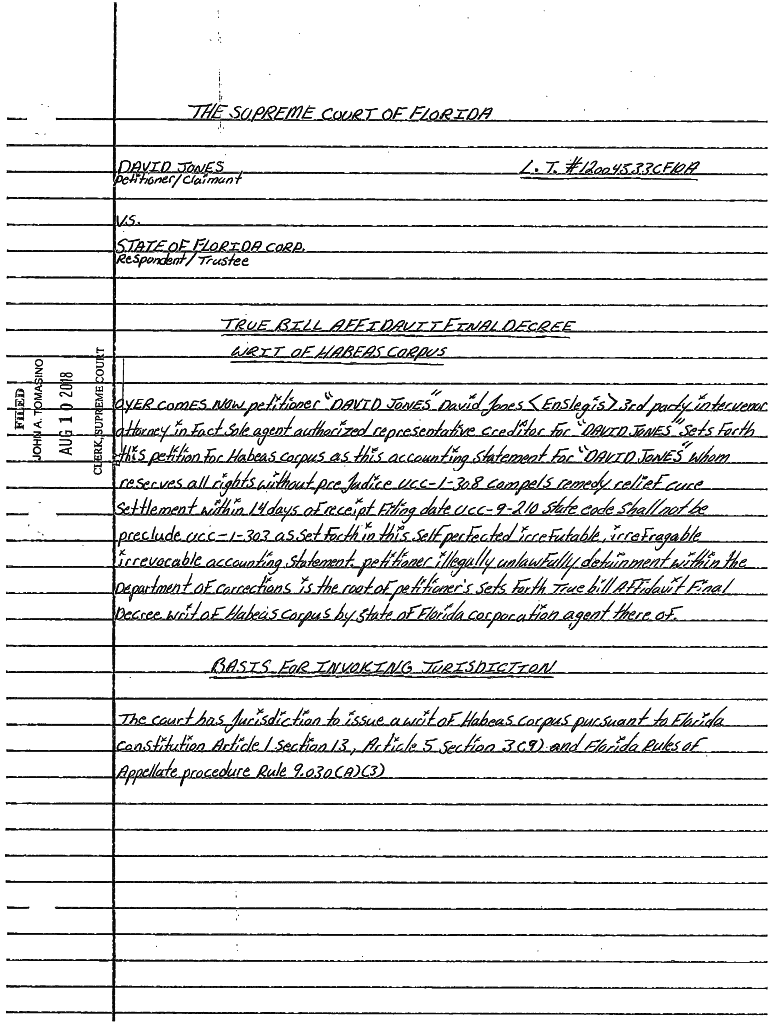 THE SUPREME COURT OF FLORIDA
DAVID JONES
Petitioner/Claimant
L.T. #12004533CF10A
VS.
STATE OF FLORIDA CORP.
Respondent/Trustee
TRUE BILL AFFIDAVIT FINAL DECREE
WRIT OF HABEAS CORPUS
FILED
JOHN A. TOMASINO
AUG 10 2018
CLERK, SUPREME COURT
OYER COMES NOW petitioner "DAVID JONES" David Jones <Enslegis> 3rd party intervenor
attorney in fact sole agent authorized representative creditor for "DAVID JONES" sets forth
this petition for Habeas corpus as this accounting statement for "DAVID JONES" whom
reserves all rights without prejudice ucc-1-308 compels remedy relief cure
settlement within 14 days of receipt filing date ucc-9-210 state code shall not be
preclude ucc-1-303 as set forth in this self perfected irrefutable, irrefragable
irrevocable accounting statement. petitioner illegally unlawfully detainment within the
Department of corrections is the root of petitioner's sets forth True bill Affidavit Final
Decree writ of Habeas Corpus by State of Florida corporation agent there of.
BASIS FOR INVOKING JURISDICTION
The court has jurisdiction to issue a writ of Habeas corpus pursuant to Florida
constitution Article 1 section 13, Article 5 section 3(9) and Florida Rules of
Appellate procedure Rule 9.030(A)(3)